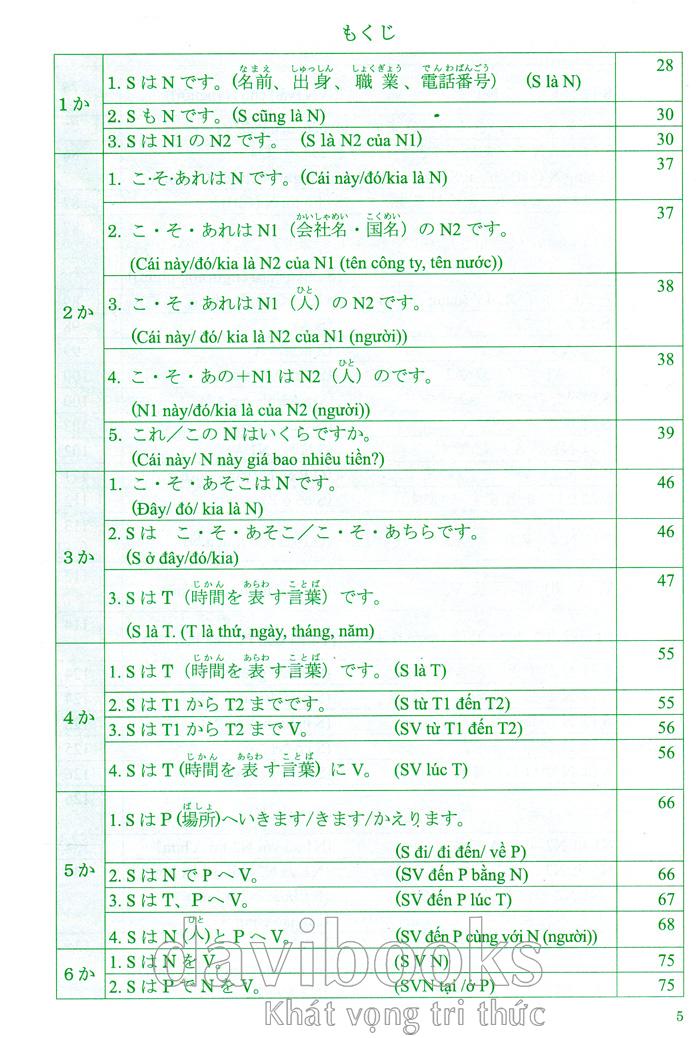 もくじ
1か
1. S は N です。(名前、出身、職業、電話番号) (S là N) 28
なまえ しゅっしん しょくぎょう でんわばんごう
2. S も N です。(S cũng là N) 30
3. S は N1 の N2 です。 (S là N2 của N1) 30
2か
1. こ·そ·あれは N です。(Cái này/đó/kia là N) 37
かいしゃめい こくめい
2. こ・そ・あれは N1（会社名・国名）の N2 です。 37
(Cái này/đó/kia là N2 của N1 (tên công ty, tên nước))
ひと
3. こ・そ・あれは N1（人）の N2 です。 38
(Cái này/ đó/ kia là N2 của N1 (người))
ひと
4. こ・そ・あの＋N1 は N2（人）のです。 38
(N1 này/đó/kia là của N2 (người))
5. これ／この N はいくらですか。 39
(Cái này/ N này giá bao nhiêu tiền?)
3か
1. こ・そ・あそこは N です。 46
(Đây/ đó/ kia là N)
2. S は こ・そ・あそこ／こ・そ・あちらです。 46
(S ở đây/đó/kia)
じかん あらわ ことば
3. S は T（時間を表す言葉）です。 47
(S là T. (T là thứ, ngày, tháng, năm)
4か
じかん あらわ ことば
1. S は T（時間を表す言葉）です。(S là T) 55
2. S は T1 から T2 までです。 (S từ T1 đến T2) 55
3. S は T1 から T2 まで V。 (SV từ T1 đến T2) 56
じかん あらわ ことば
4. S は T (時間を表す言葉) に V。 (SV lúc T) 56
5か
ばしょ
1. S は P (場所)へいきます/きます/かえります。 66
(S đi/ đi đến/ về P)
2. S は N で P へ V。 (SV đến P bằng N) 66
3. S は T、P へ V。 (SV đến P lúc T) 67
ひと
4. S は N (人)と P へ V。 (SV đến P cùng với N (người)) 68
6か
1. S は N を V。 (S V N) 75
2. S は P で N を V。 (SVN tại /ở P) 75
davibooks
Khát vọng tri thức
5